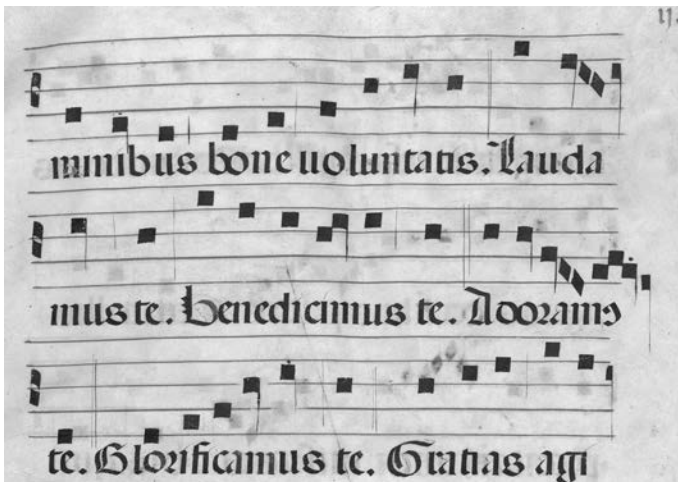 minibus bone uoluntatis. Lauda
mus te. Benedicimus te. Adoram⁹
te. Glorificamus te. Gratias agi